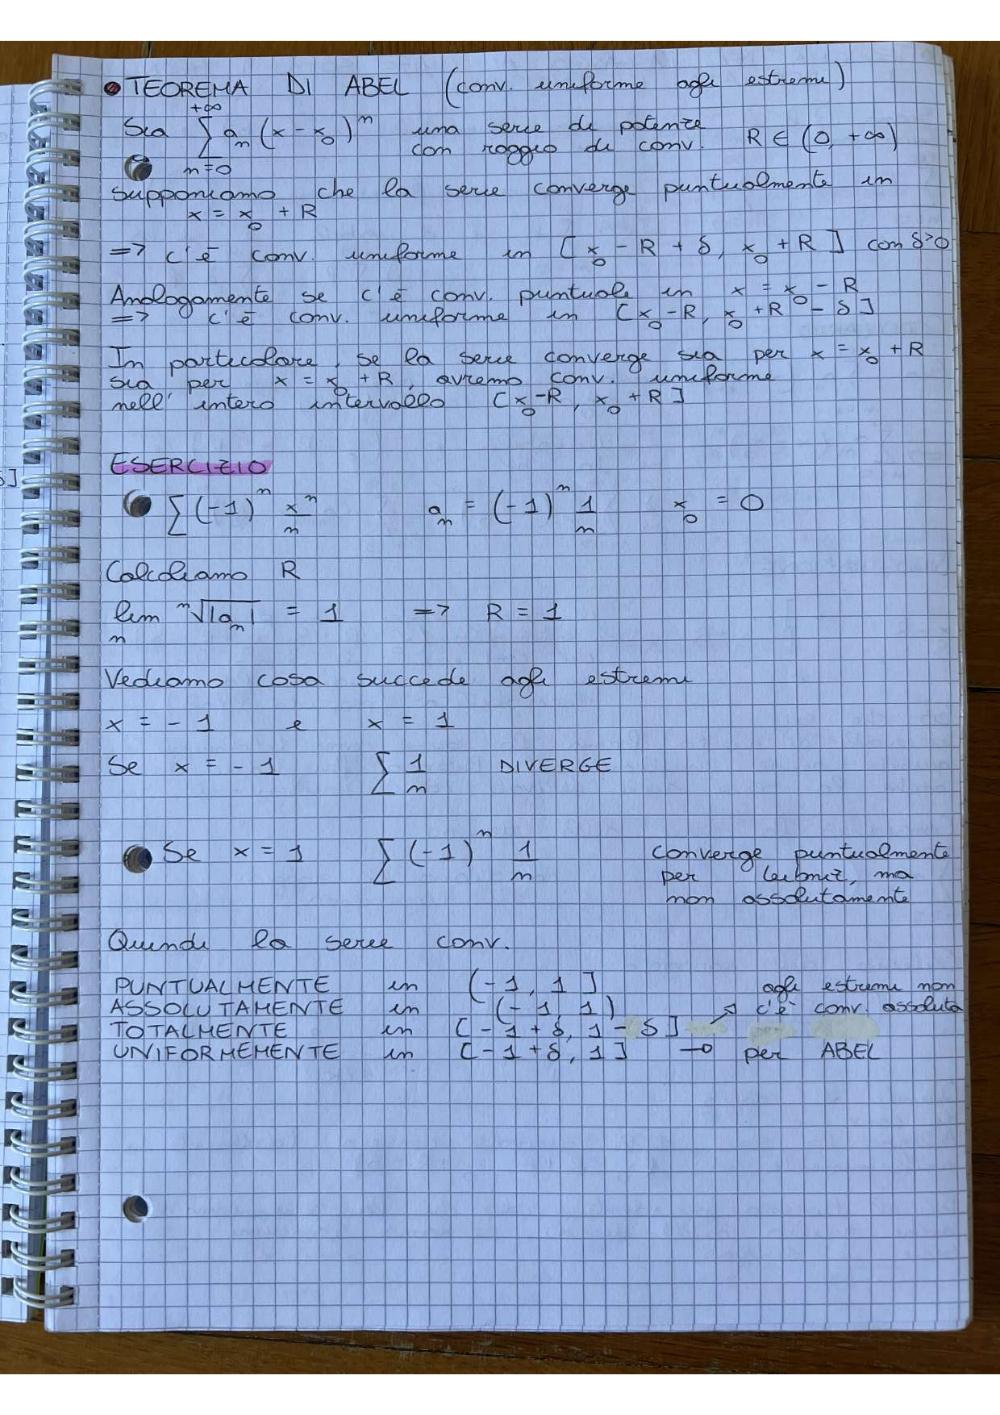 • TEOREMA DI ABEL (conv. uniforme agli estremi)
Sia +∞ ∑ n=0 aₙ (x - x₀)ⁿ una serie di potenze con raggio di conv. R ∈ (0, +∞)
Supponiamo che la serie converge puntualmente in
x = x₀ + R
=> c'è conv. uniforme in [x₀ - R + δ, x₀ + R] con δ>0
Analogamente se c'è conv. puntuale in x = x₀ - R
=> c'è conv. uniforme in [x₀-R, x₀ +R - δ]
In particolare, se la serie converge sia per x = x₀ + R
sia per x = x₀ + R, avremo conv. uniforme
nell' intero intervallo [x₀-R, x₀ + R]
ESERCIZIO
∑ (-1)ⁿ xⁿ/n aₙ = (-1)ⁿ 1/n x₀ = 0
Calcoliamo R
lim n ⁿ√|aₙ| = 1 => R = 1
Vediamo cosa succede agli estremi
x = - 1 e x = 1
Se x = - 1 ∑ 1/n DIVERGE
Se x = 1 ∑ (-1)ⁿ 1/n converge puntualmente
per Leibniz, ma
non assolutamente
Quindi la serie conv.
PUNTUALMENTE in (-1, 1]
ASSOLUTAMENTE in (-1, 1)
TOTALMENTE in [-1 + δ, 1 - δ] → agli estremi non
c'è conv. assoluta
UNIFORMEMENTE in [-1 + δ, 1] → per ABEL